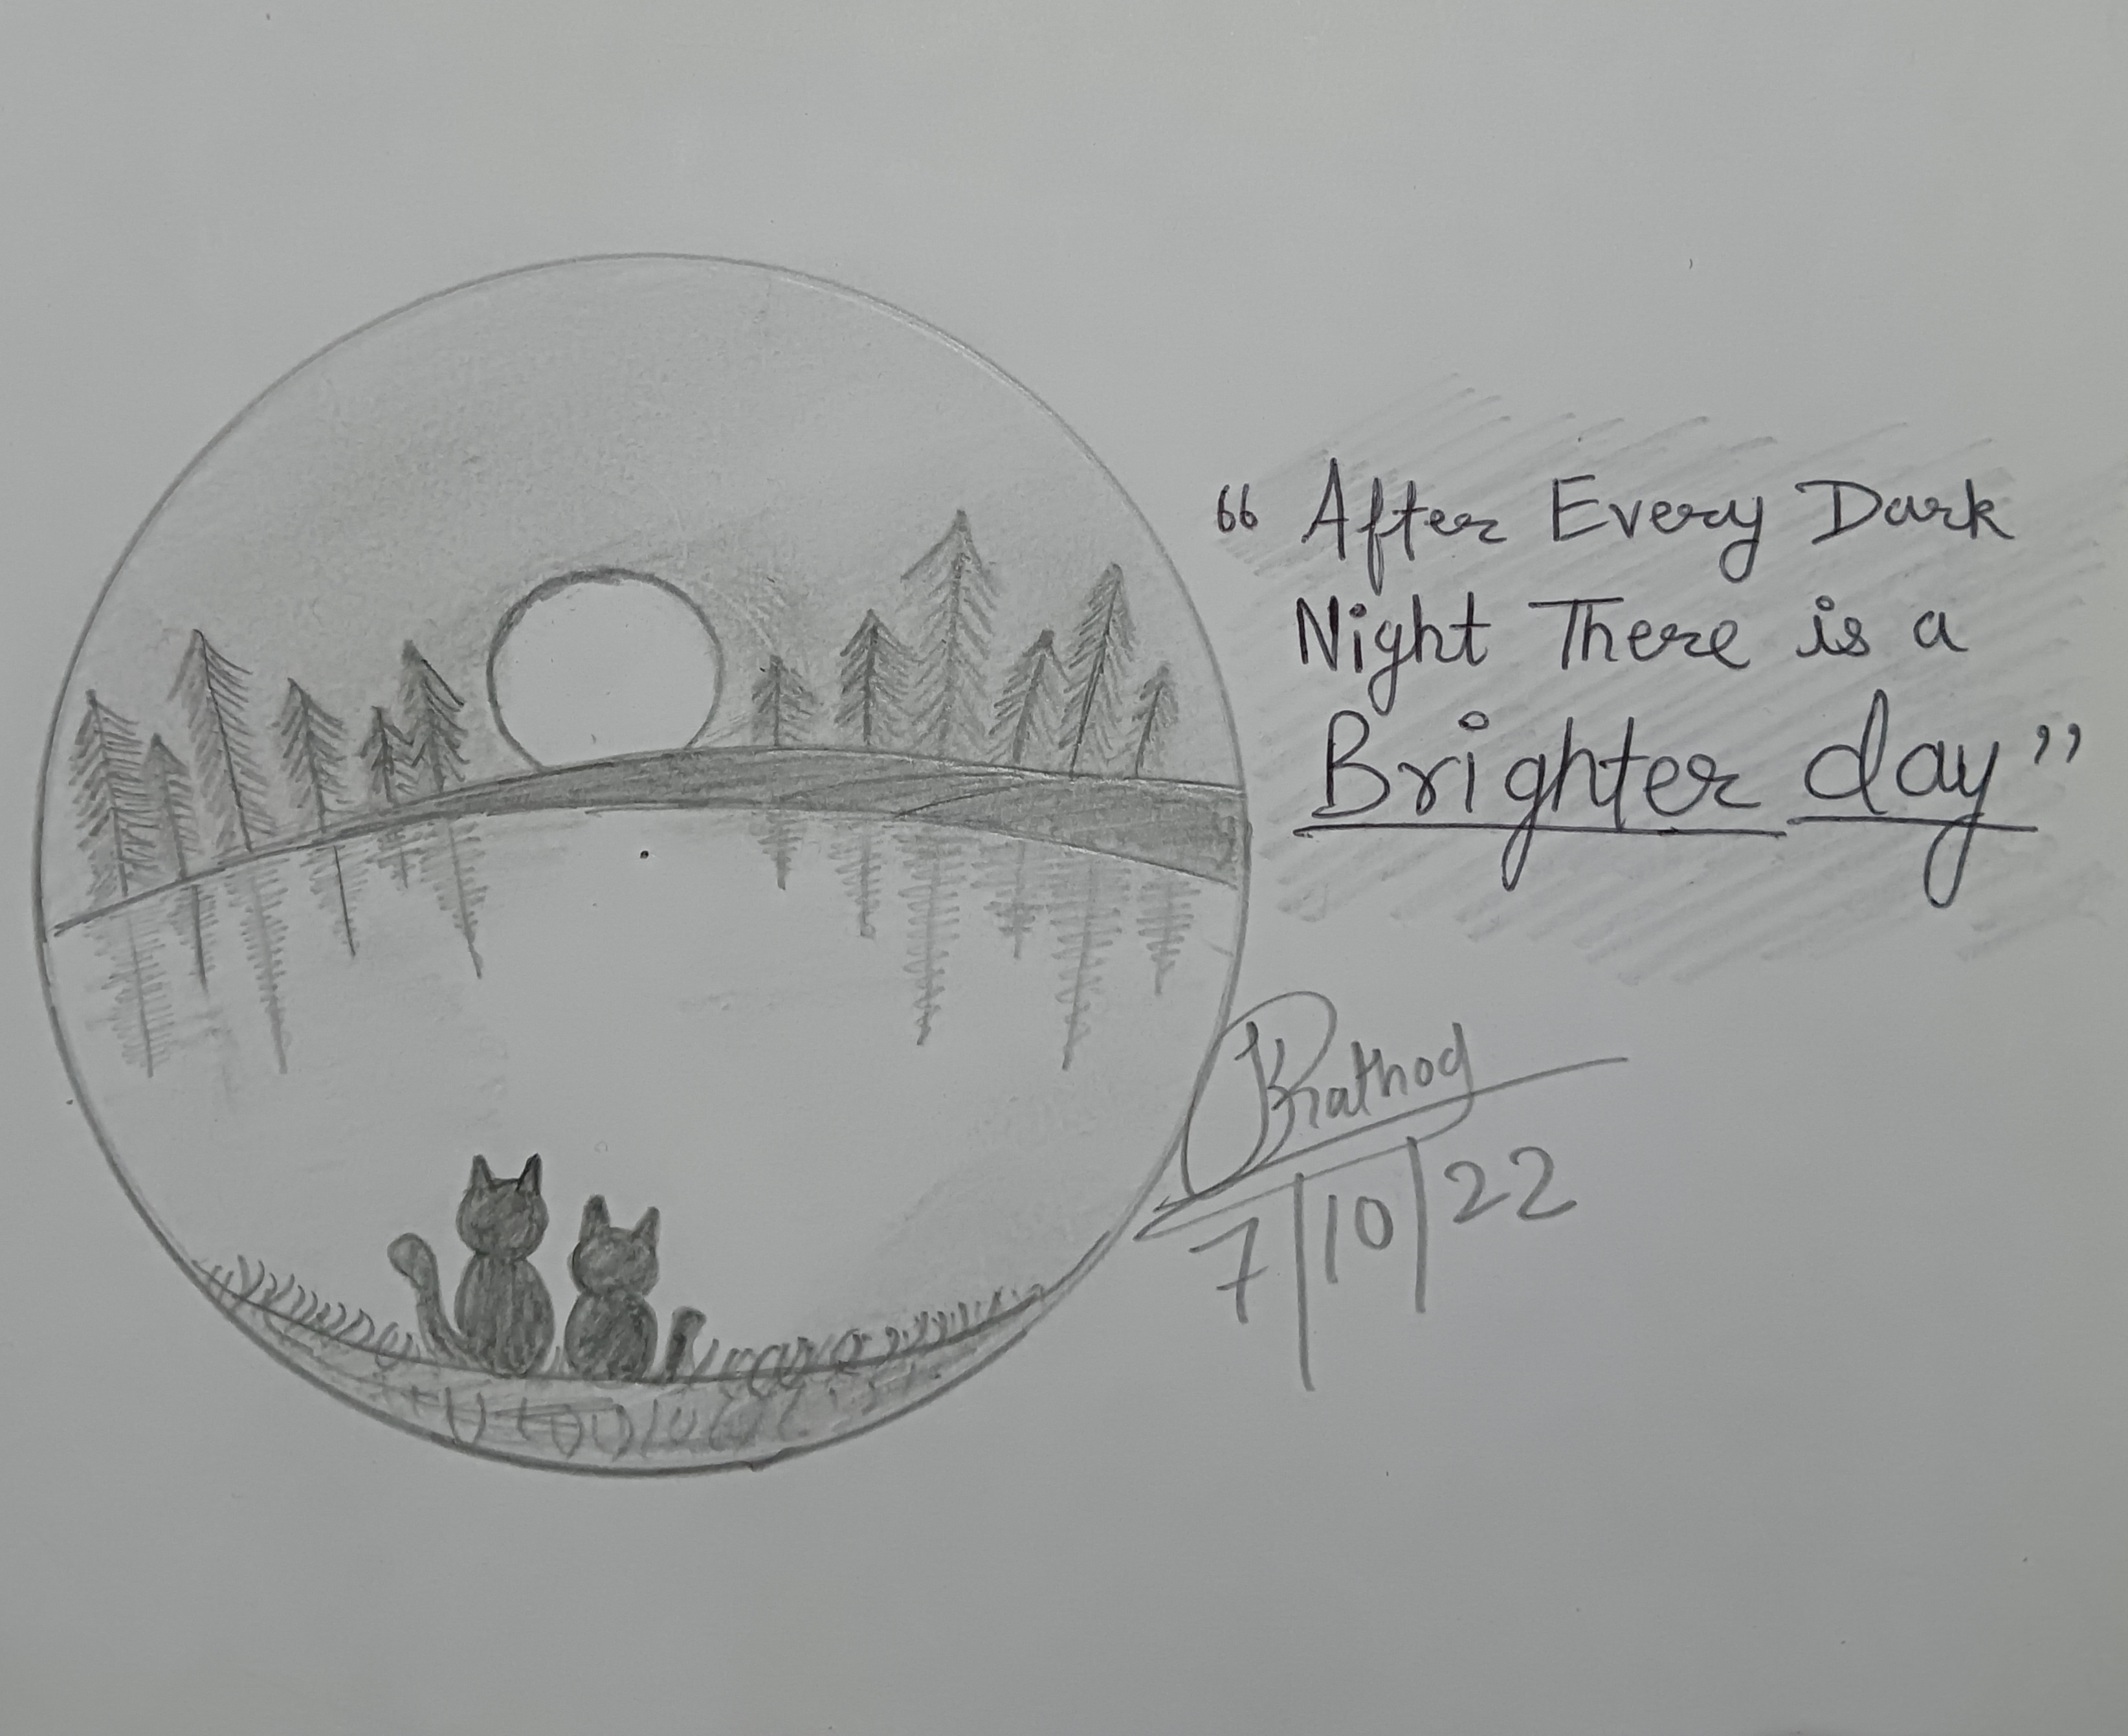 “ After Every Dark
Night There is a
Brighter day ”
Rathod
7/10/22